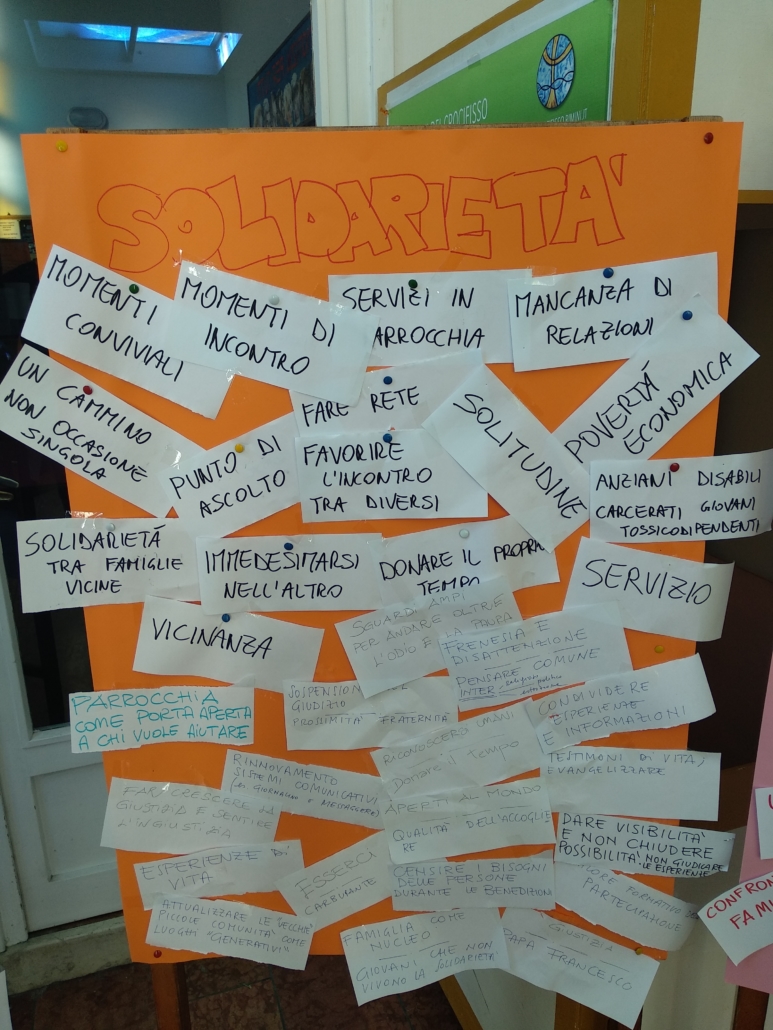 CROCIFISSO
SOLIDARIETA'
MOMENTI
CONVIVIALI
MOMENTI DI
INCONTRO
SERVIZI IN
ARROCCHIA
MANCANZA DI
RELAZIONI
UN CAMMINO
NON OCCASIONE
SINGOLA
PUNTO DI
ASCOLTO
FARE RETE
FAVORIRE
L'INCONTRO
TRA DIVERSI
SOLITUDINE
POVERTÁ
ECONOMICA
ANZIANI DISABILI
CARCERATI GIOVANI
TOSSICODIPENDENTI
SOLIDARIETÁ
TRA FAMIGLIE
VICINE
IMMEDESIMARSI
NELL'ALTRO
DONARE IL PROPRIO
TEMPO
SERVIZIO
VICINANZA
SGUARDI AMPI
PER ANDARE OLTRE
L'ODIO E LA PAURA
FRENESIA E
DISATTENZIONE
PENSARE COMUNE
INTER
PARROCCHIA
COME PORTA APERTA
A CHI VUOLE AIUTARE
SOSPENSION
GIUDIZIO
PROSSIMITA' FRATERNITÀ
CONDIVIDERE
ESPERIENZE
E INFORMAZIONI
RICONOSCERSI UMANI
Donare il tempo
RINNOVAMENTO
SISTEMI COMUNICATIVI
TESTIMONI DI VITA,
EVANGELIZZARE
FAR CRESCERE LA
GIUSTIZIA E SENTIRE
L'INGIUSTIZIA
APERTI AL MONDO
QUALITÀ DELL'ACCOGLIE
RE
DARE VISIBILITA'
E NON CHIUDERE
POSSIBILITA' NON GIUDICARE
LE ESPERIENZE
ESPERIENZE DI
VITA
ESSERCI
CARBURANTE
CENSIRE I BISOGNI
DELLE PERSONE
DURANTE LE BENEDIZIONI
FORMATIVO
PARTECIPAZIONE
ATTUALIZZARE LE "VECCHIE"
PICCOLE COMUNITA' COME
LUOGHI "GENERATIVI"
FAMIGLIA COME
NUCLEO
GIOVANI CHE NON
VIVONO LA SOLIDARIETA'
GIUSTIZIA
PAPA FRANCESCO
CONFRON
FAMI